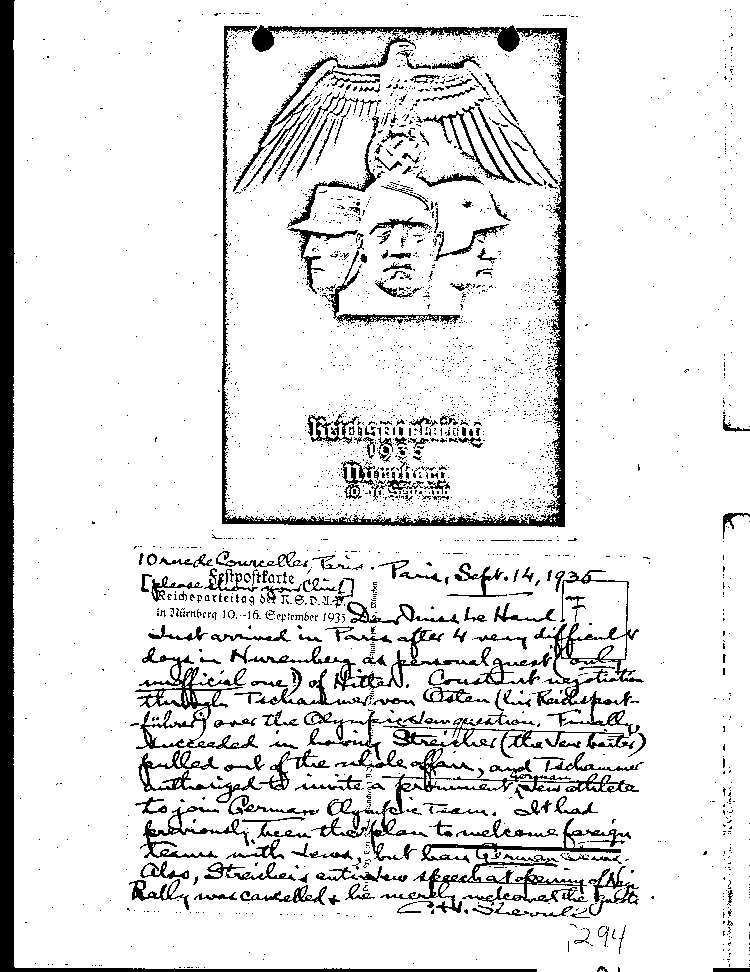 Reichsparteitag
1935
Nürnberg
10.-16. September
10 rue de Courcelles, Paris.
Paris, Sept. 14, 1935
Festpostkarte
[please show your Chief]
Reichsparteitag der N.S.D.A.P.
in Nürnberg 10.-16. September 1935
Dear Miss Le Hand,
7
Just arrived in Paris after 4 very difficult
days in Nuremberg as personal guest (only
unofficial one!) of Hitler. Constant negotiation
through Tschammer von Osten (his Reichsport-
führer) over the Olympic Jew question. Finally
succeeded in having Streicher (the Jew baiter)
pulled out of the whole affair, and Tschammer
authorized to invite a prominent German Jew athlete
to join German Olympic Team. It had
previously been the plan to welcome foreign
teams with Jews, but ban German Jews.
Also, Streicher's anti Jew speech at opening of Nazi
Rally was cancelled & he merely welcomed the guests
C. H. Sherrill
294